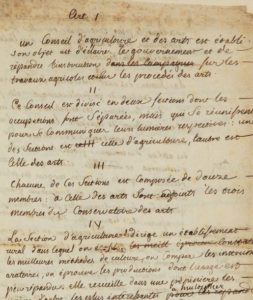 Art. I
un Conseil d'agriculture et des arts est établi
son objet est d'éclairer le gouvernement et de
répandre l'instruction dans les campagnes sur les
travaux agricoles et sur les procédés des arts
II
Ce Conseil est divisé en deux sections dont les
occupations sont séparées, mais qui se réunissent
pour se communiquer leurs lumieres respectives : une
des sections est celle d'agriculture, l'autre est
Celle des arts.
III
Chacune de ces Sections est composée de douze
membres : à celle des arts sont adjoints les trois
membres du Conservatoire des arts
IV
La Section d'agriculture dirige un établissement
rural dans lequel on
les meilleures methodes de culture, on compare les instrumens
aratoires, on éprouve les productions dont l'usage est
peu répandu. elle recueille dans une pépiniere les
multiplier
les plus